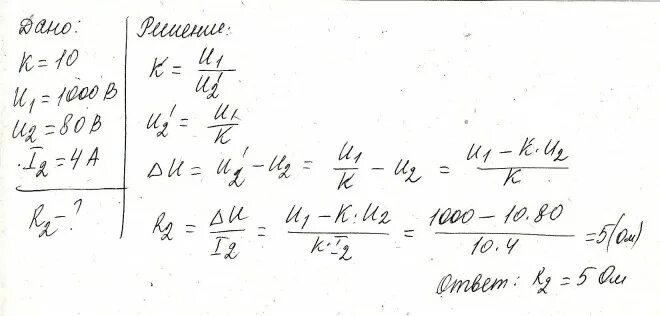 Дано:
K = 10
U₁ = 1000 В
U₂ = 80 В
I₂ = 4 А
R₂ - ?
Решение:
K = U₁/U₂'
U₂' = U₁/K
ΔU = U₂' - U₂ = U₁/K - U₂ = (U₁ - K·U₂)/K
R₂ = ΔU/I₂ = (U₁ - K·U₂)/(K·I₂) = (1000 - 10·80)/(10·4) = 5(Ом)
Ответ: R₂ = 5 Ом